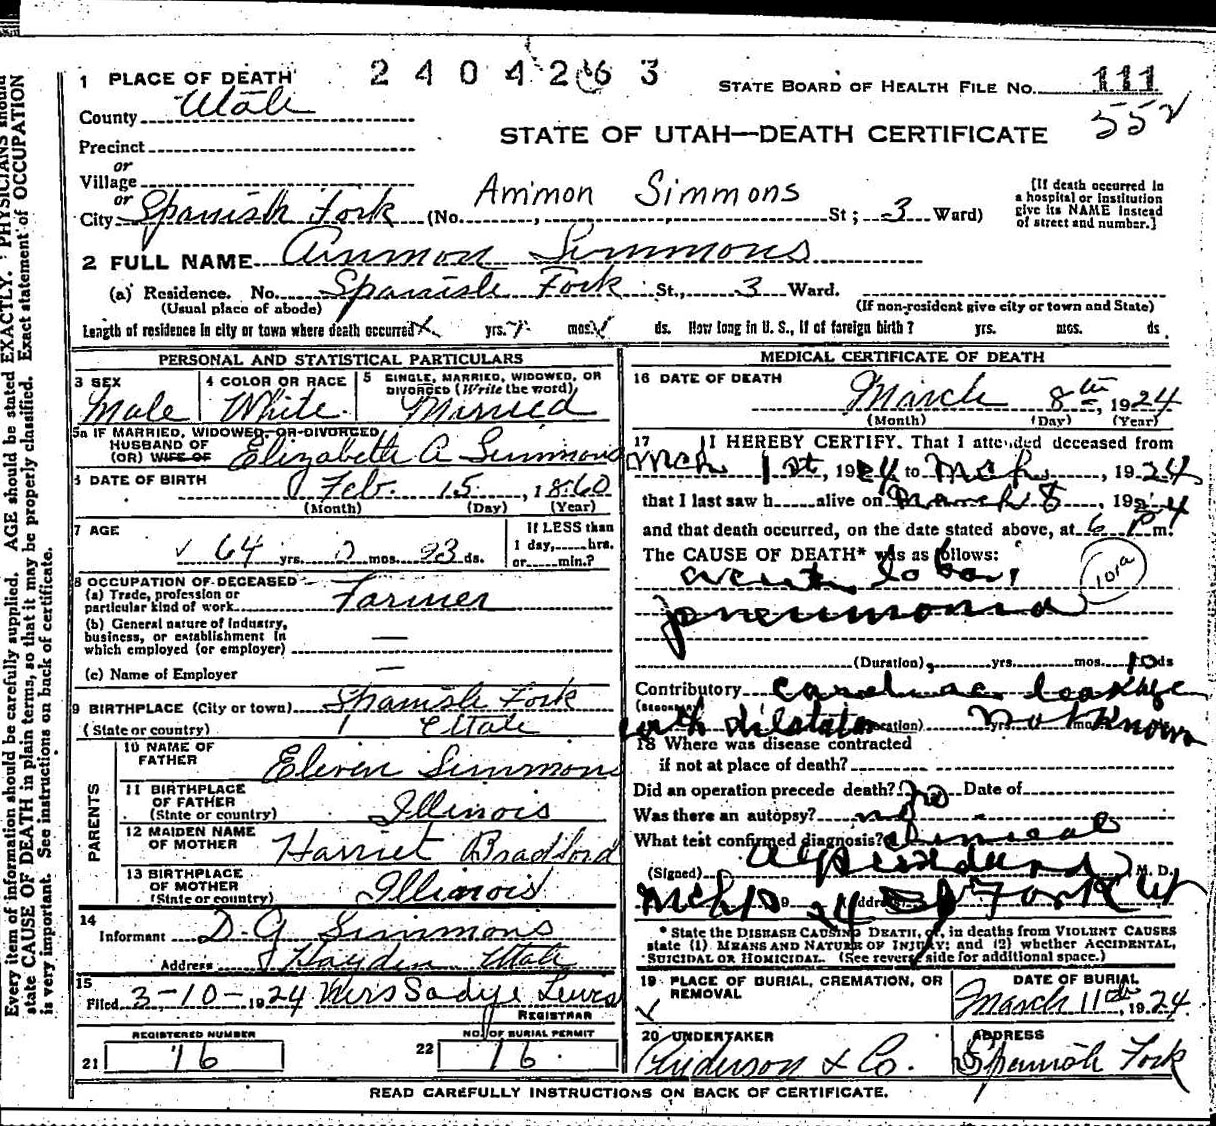 1 PLACE OF DEATH 2404263 STATE BOARD OF HEALTH FILE NO. 111
County Utah 552
STATE OF UTAH—DEATH CERTIFICATE
Precinct
or
Village
or
Ammon Simmons
[If death occurred in a hospital or institution give its NAME instead of street and number.]
City Spanish Fork (No. , , St; 3 Ward)
2 FULL NAME Ammon Simmons
(a) Residence. No. Spanish Fork St., 3 Ward.
(Usual place of abode) (If non-resident give city or town and State)
Length of residence in city or town where death occurred yrs. mos. ds. How long in U. S., if of foreign birth? yrs. mos. ds
PERSONAL AND STATISTICAL PARTICULARS
3 SEX Male
4 COLOR OR RACE White
5 SINGLE, MARRIED, WIDOWED, OR DIVORCED (Write the word) Married
5a IF MARRIED, WIDOWED, OR DIVORCED
HUSBAND OF
(OR) WIFE OF Elizabeth A Simmons
6 DATE OF BIRTH Feb. 15, 1860
(Month) (Day) (Year)
7 AGE 64 yrs. mos. 23 ds.
If LESS than
1 day, hrs.
or min.?
8 OCCUPATION OF DECEASED
(a) Trade, profession or
particular kind of work Farmer
(b) General nature of industry,
business, or establishment in
which employed (or employer) —
(c) Name of Employer —
9 BIRTHPLACE (City or town) Spanish Fork
(State or country) Utah
PARENTS
10 NAME OF
FATHER Eleven Simmons
11 BIRTHPLACE
OF FATHER
(State or country) Illinois
12 MAIDEN NAME
OF MOTHER Harriet Bradford
13 BIRTHPLACE
OF MOTHER
(State or country) Illinois
14
Informant D. G Simmons
Address Hayden Utah
15
Filed 3-10-1924 Mrs Sadye Lewis
REGISTRAR
REGISTERED NUMBER
21 16
NO. OF BURIAL PERMIT
22 16
MEDICAL CERTIFICATE OF DEATH
16 DATE OF DEATH March 8th, 1924
(Month) (Day) (Year)
17 I HEREBY CERTIFY. That I attended deceased from
Mch 1st, 1924 to Mch , 1924
that I last saw h alive on March 8, 1924
and that death occurred, on the date stated above, at 6 Pm.
The CAUSE OF DEATH* was as follows:
acute lobar 101a
pneumonia
(Duration), yrs. mos. 10 ds
Contributory cardiac leakage
(SECONDARY)
with dilatation (Duration) not known
18 Where was disease contracted
if not at place of death?
Did an operation precede death? no Date of
Was there an autopsy? no
What test confirmed diagnosis? clinical
(Signed) , M. D.
Mch 10 1924 (Address) Sp Fork Ut
* State the DISEASE CAUSING DEATH, or, in deaths from VIOLENT CAUSES
state (1) MEANS AND NATURE OF INJURY; and (2) whether ACCIDENTAL,
SUICIDAL OR HOMICIDAL. (See reverse side for additional space.)
19 PLACE OF BURIAL, CREMATION, OR
REMOVAL
DATE OF BURIAL
March 11th, 1924
20 UNDERTAKER
Anderson & Co.
ADDRESS
Spanish Fork
READ CAREFULLY INSTRUCTIONS ON BACK OF CERTIFICATE.
Every item of information should be carefully supplied. AGE should be stated EXACTLY. PHYSICIANS should
state CAUSE OF DEATH in plain terms, so that it may be properly classified. Exact statement of OCCUPATION
is very important. See instructions on back of certificate.